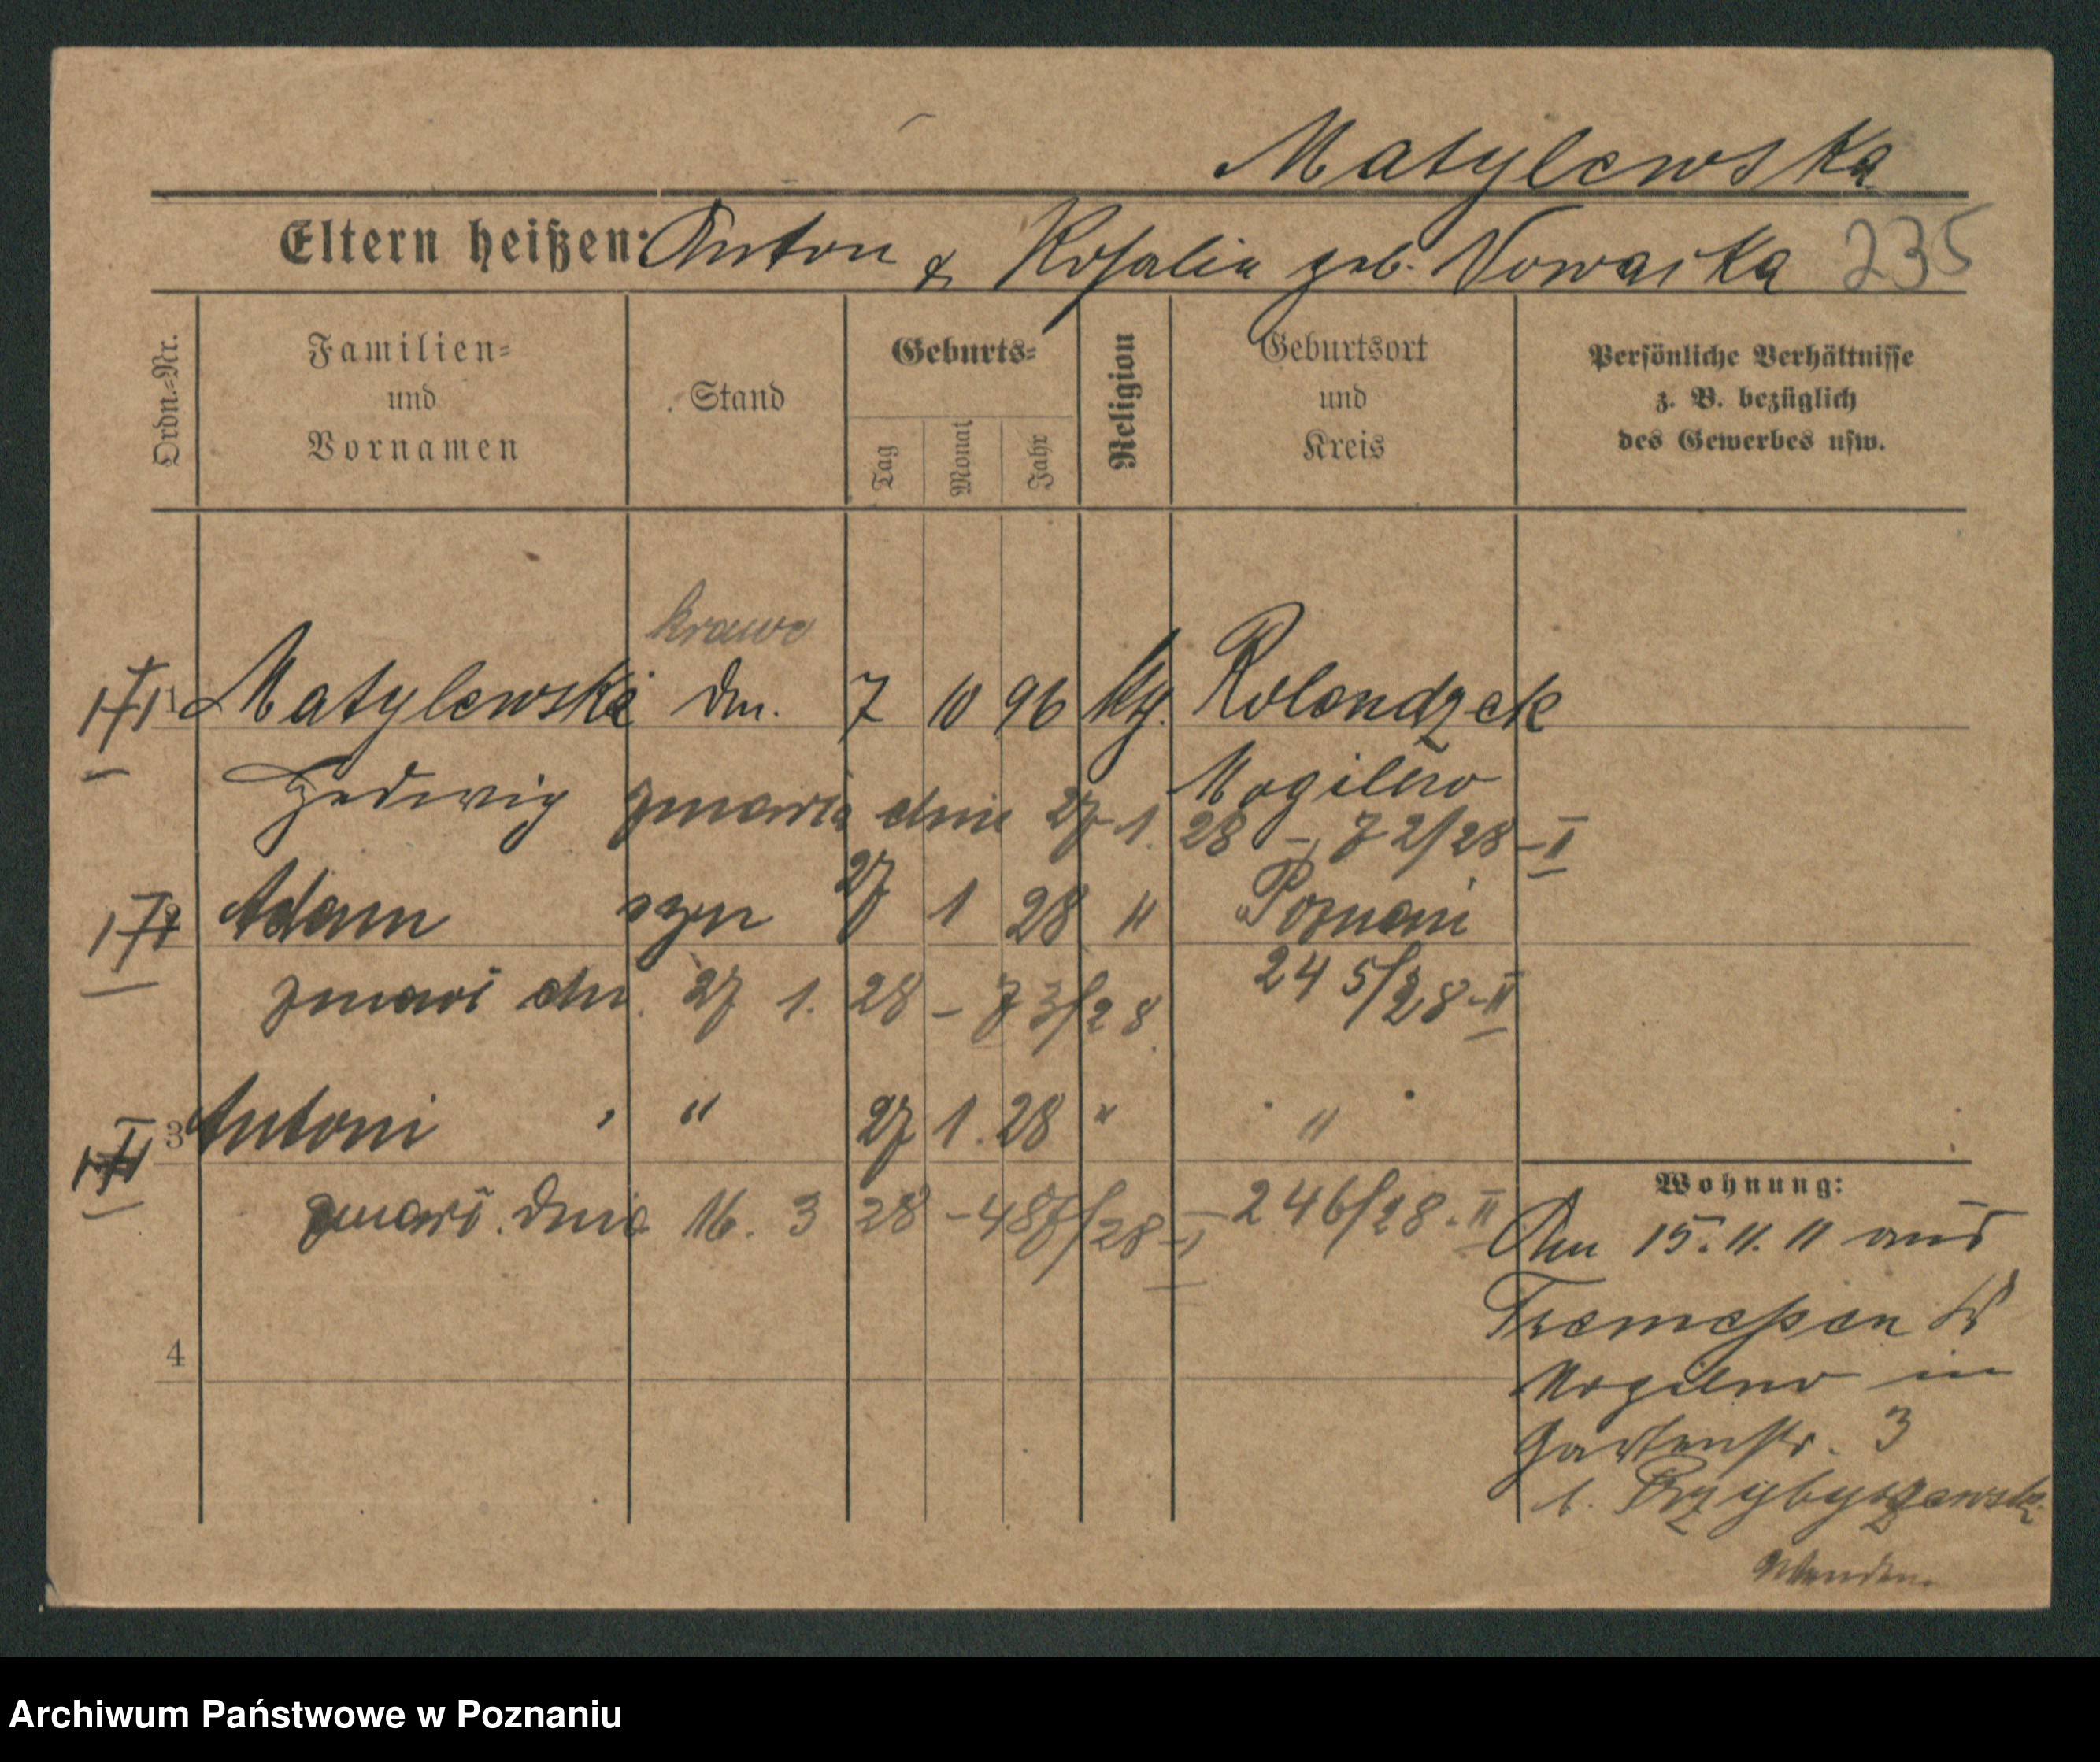 Matylewska
Eltern heißen: Anton & Rosalia geb. Nowacka 235
Ordn.-Nr.
Familien-
und
Vornamen
Stand
Geburts-
Tag
Monat
Jahr
Religion
Geburtsort
und
Kreis
Persönliche Verhältnisse
z. B. bezüglich
des Gewerbes usw.
krawc
1 Matylewska Dm. 7 10 96 kt. Kolendzek
Hedwig Mogilno
zmarła dnia 27 1. 28 – 72/28 – I
Adam syn 27 1 28 " Poznań
245/28 - II
zmarł dn. 27 1. 28 – 73/28
3 Antoni " 27 1. 28 " "
zmarł. dnia 16. 3 28 – 487/28 – I – 246/28 - II
4
Wohnung:
Am 15. 11. 11 aus
Tremessen Kr
Mogilno in
Gartenstr. 3
b. Przybyszewsk